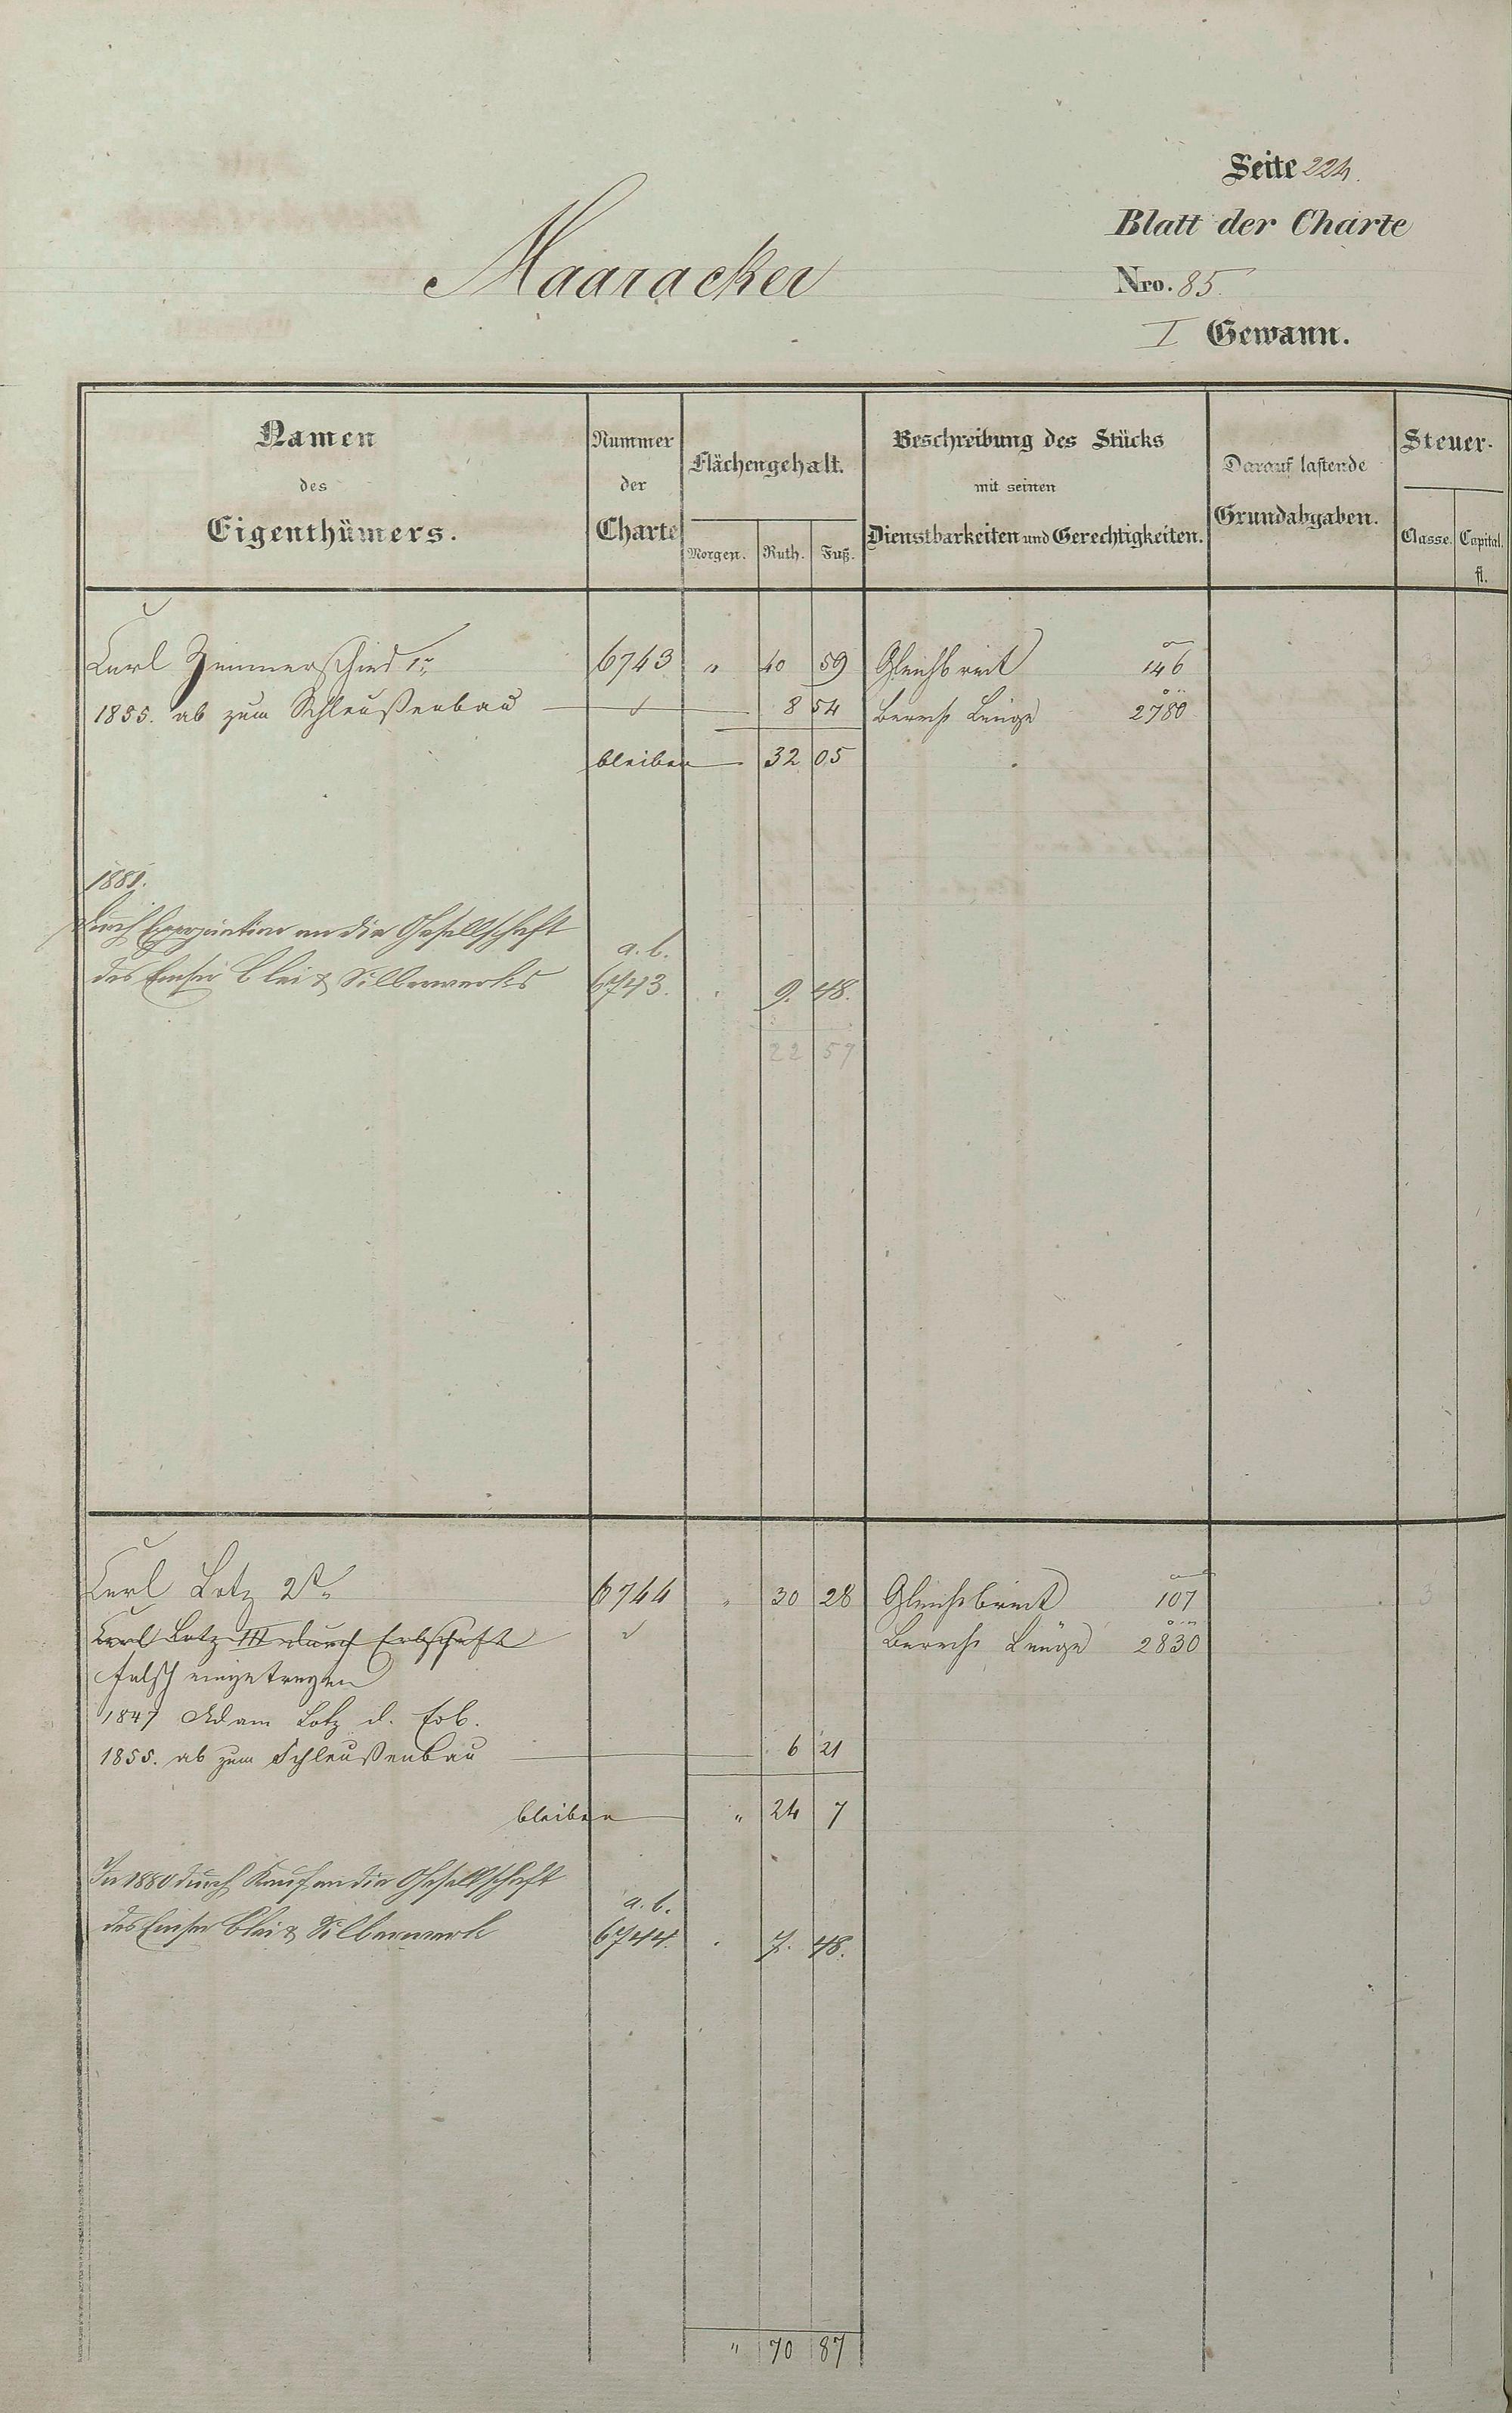 Seite 224.
Blatt der Charte
Maaracker
Nro. 85.
I Gewann.
Namen des Eigenthümers.
Nummer der Charte
Flächengehalt.
Morgen. Ruth. Fuß.
Beschreibung des Stücks mit seinen Dienstbarkeiten und Gerechtigkeiten.
Darauf lastende Grundabgaben.
Steuer-
Classe. Capital. fl.
Carl Zimmerschied 1r 6743 " 40 59 Gleichbreit 146
1855. ab zum Schleußenbau 8 54 Berech Länge 2780
bleiben 32 05
1881.
durch Expropriation an die Gesellschaft
des Emser Blei & Silberwerks a. b. 6743. . 9. 48.
22 57
Carl Lotz 2r 6744 " 30 28 Gleichbreit 107
Carl Lotz III durch Erbschaft Berech Länge 2830
falsch eingetragen
1847 Adam Lotz d. Erb.
1855. ab zum Schleußenbau 6 21
bleiben " 24 7
In 1880 durch Kauf an die Gesellschaft
des Emser Blei & Silberwerk a. b. 6744. . 7. 48.
" 70 87